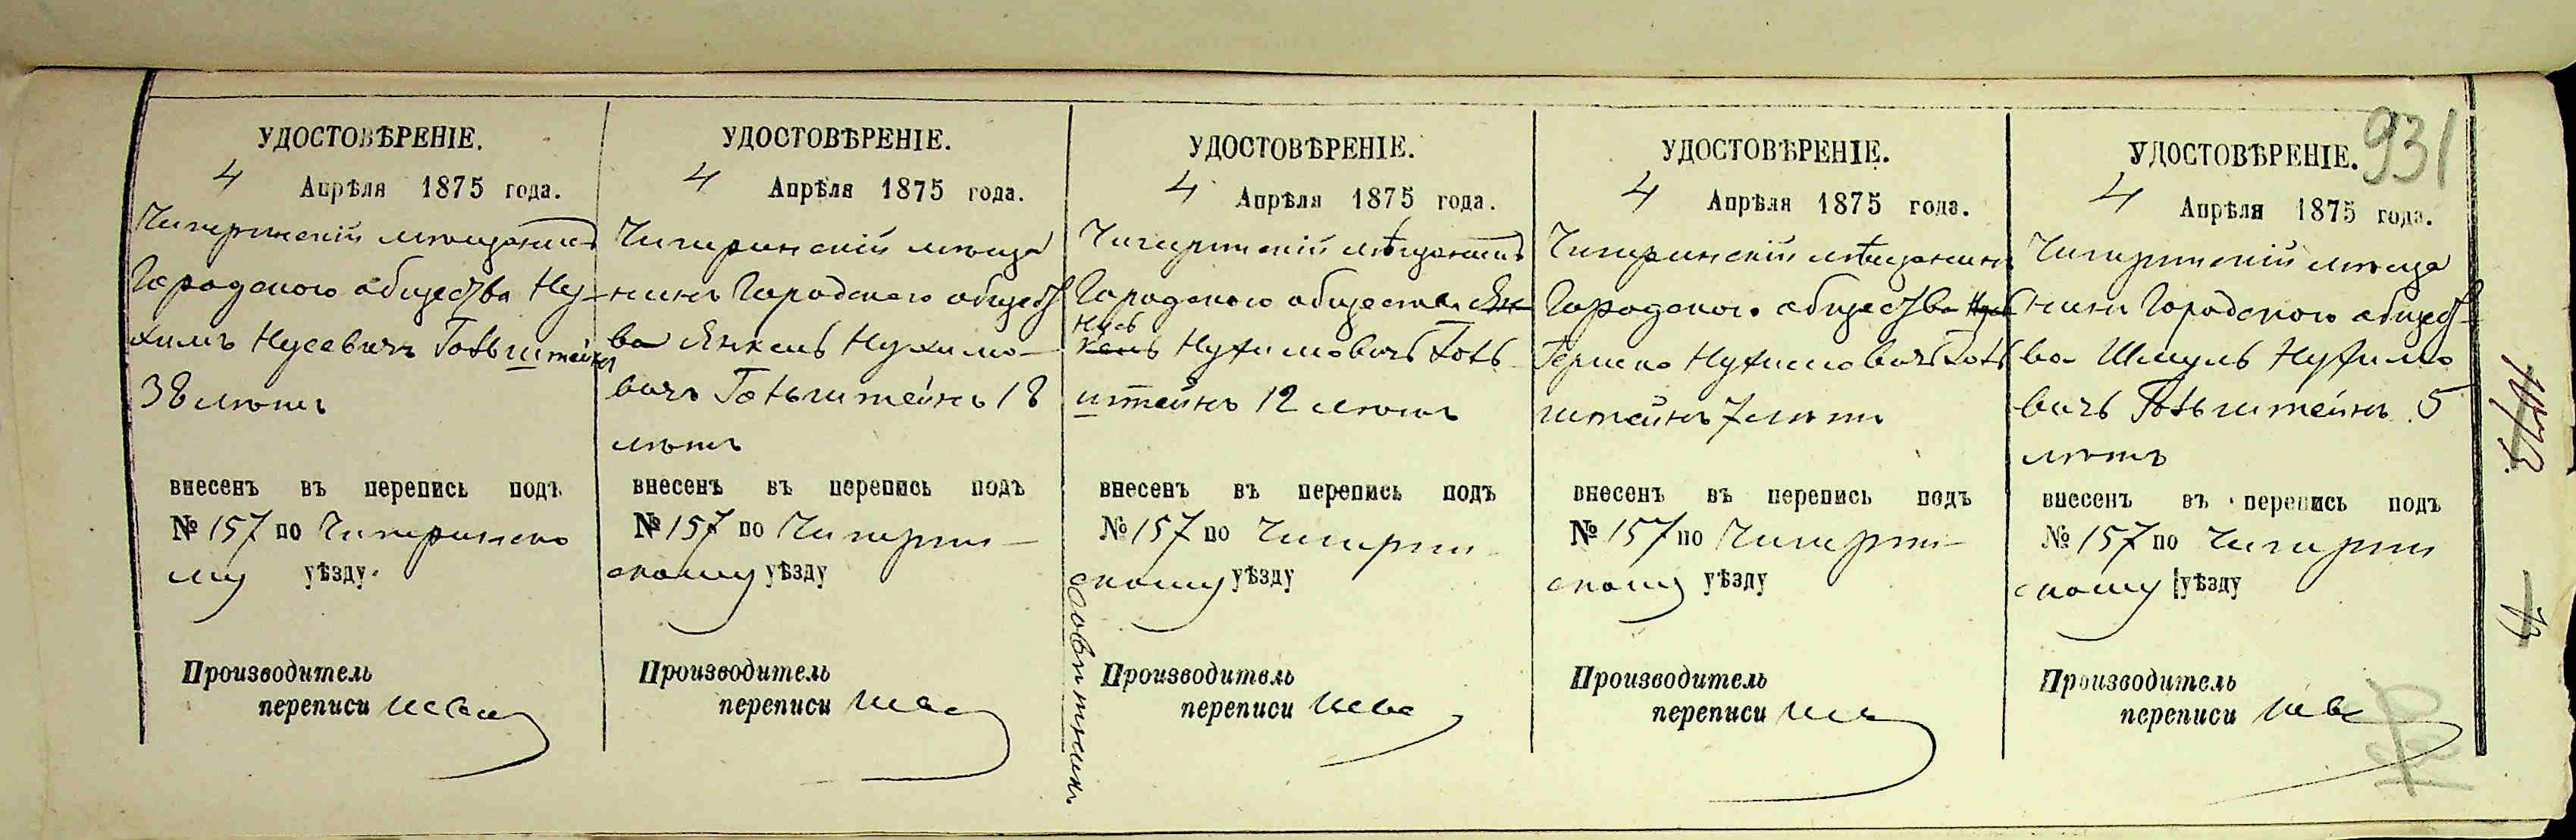 931
УДОСТОВѢРЕНІЕ.
4 Апрѣля 1875 года.
Чигиринскій мѣщанинъ
Городского общества Ну-
химъ Нусевичъ Гольштейнъ
38 лѣтъ
внесенъ въ перепись подъ
№ 157 по Чигиринско
му уѣзду.
Производитель
переписи
УДОСТОВѢРЕНІЕ.
4 Апрѣля 1875 года.
Чигиринскій мѣща
нинъ Городского общест
ва Янкель Нухимо-
вичъ Гольштейнъ 18
лѣтъ
внесенъ въ перепись подъ
№ 157 по Чигирин-
скому уѣзду
Производитель
переписи
УДОСТОВѢРЕНІЕ.
4 Апрѣля 1875 года.
Чигиринскій мѣщанинъ
Городского общества Ян
Нусь
кель Нухимовичъ Голь
штейнъ 12 лѣтъ
внесенъ въ перепись подъ
№ 157 по Чигирин-
скому уѣзду
Производитель
переписи
УДОСТОВѢРЕНІЕ.
4 Апрѣля 1875 года.
Чигиринскій мѣщанинъ
Городского общества
Гершко Нухимовичъ Голь
штейнъ 7 лѣтъ
внесенъ въ перепись подъ
№ 157 по Чигирин-
скому уѣзду
Производитель
переписи
УДОСТОВѢРЕНІЕ.
4 Апрѣля 1875 года.
Чигиринскій мѣща
нинъ Городского общест-
ва Шмуль Нухимо
вичъ Гольштейнъ 5
лѣтъ
внесенъ въ перепись подъ
№ 157 по Чигирин
скому уѣзду
Производитель
переписи